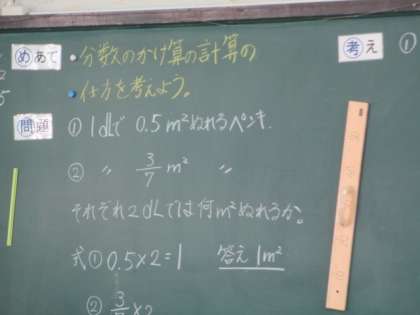 めあて ・分数のかけ算の計算の
・仕方を考えよう。
問題 ① 1dLで 0.5m²ぬれるペンキ.
② 〃 3/7 m² 〃
それぞれ2dLでは何m²ぬれるか。
式① 0.5×2=1 答え 1m²
② 3/7×2
考え ①